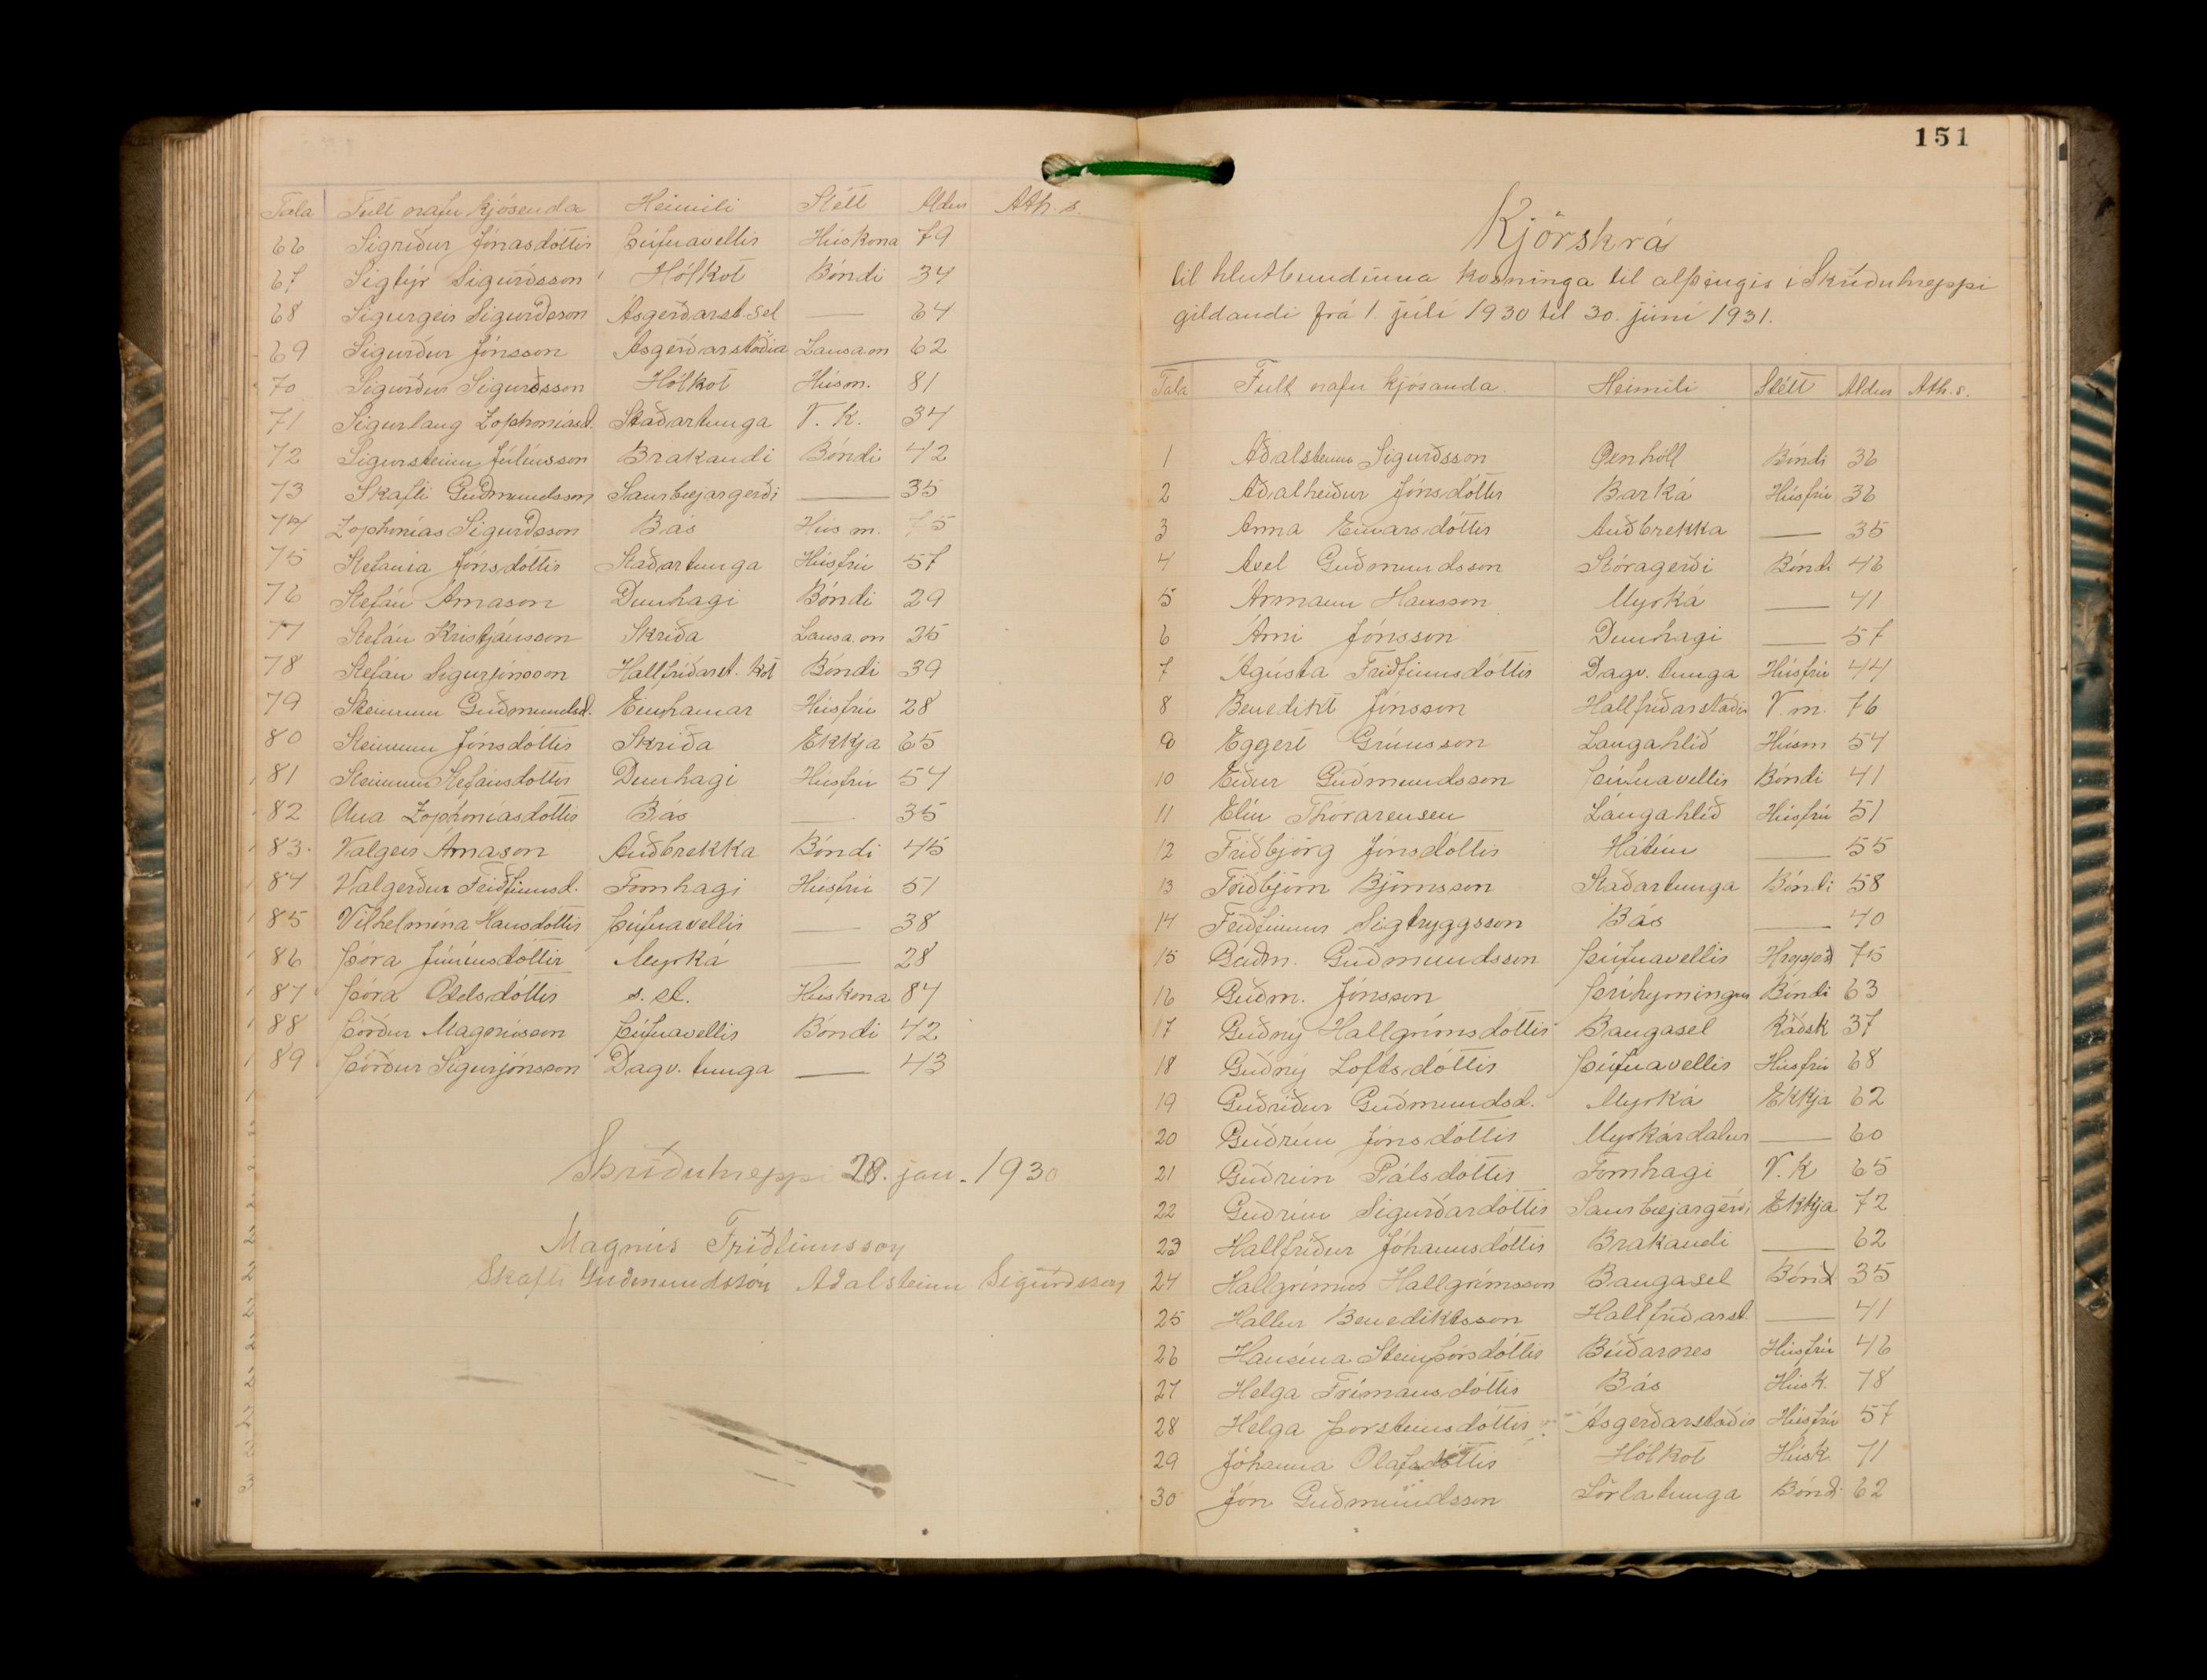 Tala Fult nafn kjósenda Heimili Stétt Aldur Ath.s.
66 Sigríður Jónasdóttir Þúfnavellir Húskona 79
67 Sigtýr Sigurðsson Hólkot Bóndi 34
68 Sigurgeir Sigurðsson Ásgerðarst.sel — 64
69 Sigurður Jónsson Ásgerðarstöðum Lausam 62
70 Sigurður Sigurðsson Hólkot Húsm. 81
71 Sigurlaug Zophoníasd. Staðartunga V. k. 34
72 Sigursteinn Júlíusson Brakandi Bóndi 42
73 Skafti Guðmundsson Saurbæjargerði — 35
74 Zophonías Sigurðsson Bás Hús m. 75
75 Stefanía Jónsdóttir Staðartunga Húsfrú 57
76 Stefán Árnason Dunhagi Bóndi 29
77 Stefán Kristjánsson Skriða Lausam 25
78 Stefán Sigurjónsson Hallfríðarst. kot Bóndi 39
79 Steinunn Guðmundsd. Einhamar Húsfrú 28
80 Steinunn Jónsdóttir Skriða Ekkja 65
81 Steinunn Stefánsdóttir Dunhagi Húsfrú 54
82 Una Zophoníasdóttir Bás — 35
83. Valgeir Árnason Auðbrekka Bóndi 45
84 Valgerður Friðfinnsd. Fornhagi Húsfrú 51
85 Vilhelmína Hansdóttir Þúfnavellir — 38
86 Þóra Júníusdóttir Myrká — 28
87 Þóra Oddsdóttir s. st. Húskona 84
88 Þórður Magnússon Þúfnavellir Bóndi 42
89 Þórður Sigurjónsson Dagv. tunga — 43
Skriðuhreppi 28. jan. 1930
Magnús Friðfinnsson
Skafti Guðmundsson Aðalsteinn Sigurðsson
151
Kjörskrá
til hlutbundinna kosninga til alþingis í Skriðuhreppi
gildandi frá 1. júlí 1930 til 30. júní 1931.
Tala Fult nafn kjósanda. Heimili Stétt Aldur Ath.s.
1 Aðalsteinn Sigurðsson Öxnhóll Bóndi 36
2 Aðalheiður Jónsdóttir Barká Húsfrú 36
3 Anna Einarsdóttir Auðbrekka — 35
4 Axel Guðmundsson Stóragerði Bóndi 46
5 Ármann Hansson Myrká — 41
6 Árni Jónsson Dunhagi — 57
7 Ágústa Friðfinnsdóttir Dagv. tunga Húsfrú 44
8 Benedikt Jónsson Hallfríðarstaðir V. m. 76
9 Eggert Grímsson Langahlíð Húsm 54
10 Eiður Guðmundsson Þúfnavellir Bóndi 41
11 Elín Thorarensen Langahlíð Húsfrú 51
12 Friðbjörg Jónsdóttir Hátún — 55
13 Friðbjörn Björnsson Staðartunga Bóndi 58
14 Friðfinnur Sigtryggsson Bás — 40
15 Guðm. Guðmundsson Þúfnavellir Hreppst 75
16 Guðm. Jónsson Þríhyrningur Bóndi 63
17 Guðný Hallgrímsdóttir Baugasel Ráðsk 37
18 Guðný Loftsdóttir Þúfnavellir Húsfrú 68
19 Guðríður Guðmundsd. Myrká Ekkja 62
20 Guðrún Jónsdóttir Myrkárdalur — 60
21 Guðrún Pálsdóttir Fornhagi V. k 65
22 Guðrún Sigurðardóttir Saurbæjargerði Ekkja 72
23 Hallfríður Jóhannsdóttir Brakandi — 62
24 Hallgrímur Hallgrímsson Baugasel Bónd 35
25 Hallur Benediktsson Hallfríðarst. — 41
26 Hansína Steinþórsdóttir Búðarnes Húsfrú 46
27 Helga Frímannsdóttir Bás Húsk. 78
28 Helga Þorsteinsdóttir Ásgerðarstaðir Húsfrú 57
29 Jóhanna Ólafsdóttir Hólkot Húsk. 71
30 Jón Guðmundsson Sörlatunga Bónd 62